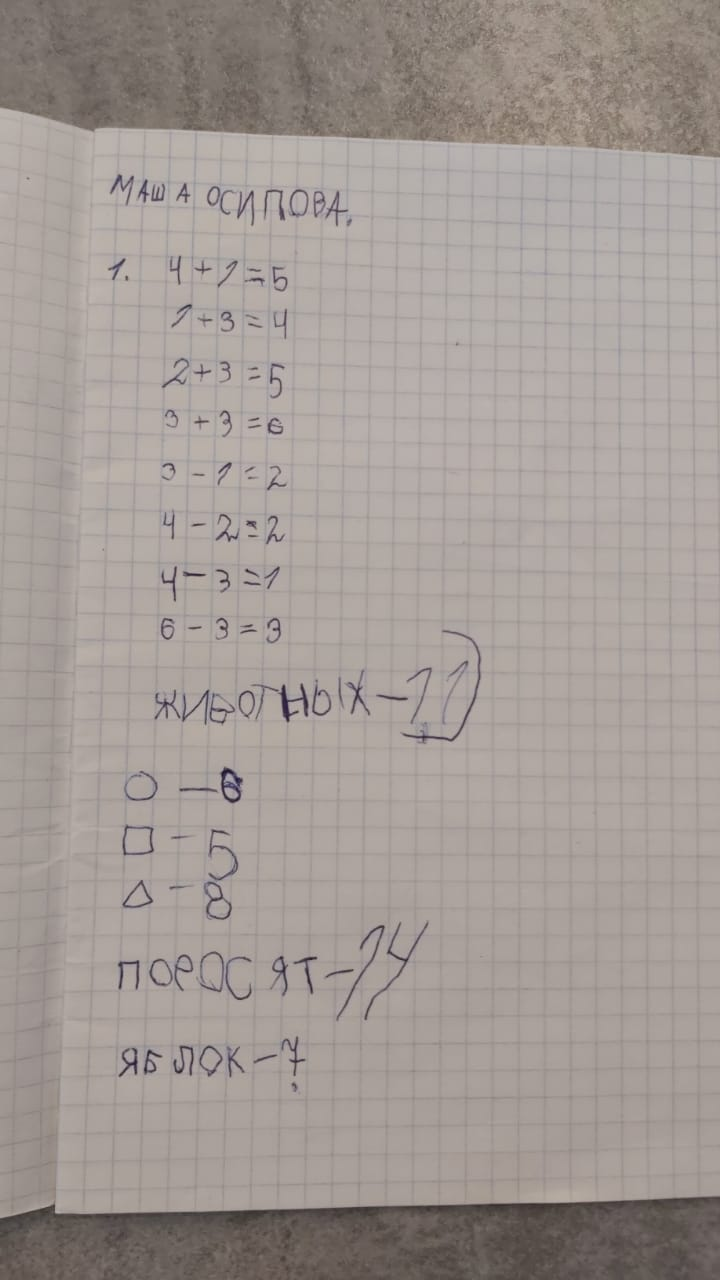 МАША ОСИПОВА.
1. 4+1=5
1+3=4
2+3=5
3+3=6
3-1=2
4-2=2
4-3=1
6-3=3
ЖИВОТНЫХ-11
○ -6
□ -5
△ -8
ПОРОСЯТ-14
ЯБЛОК-7